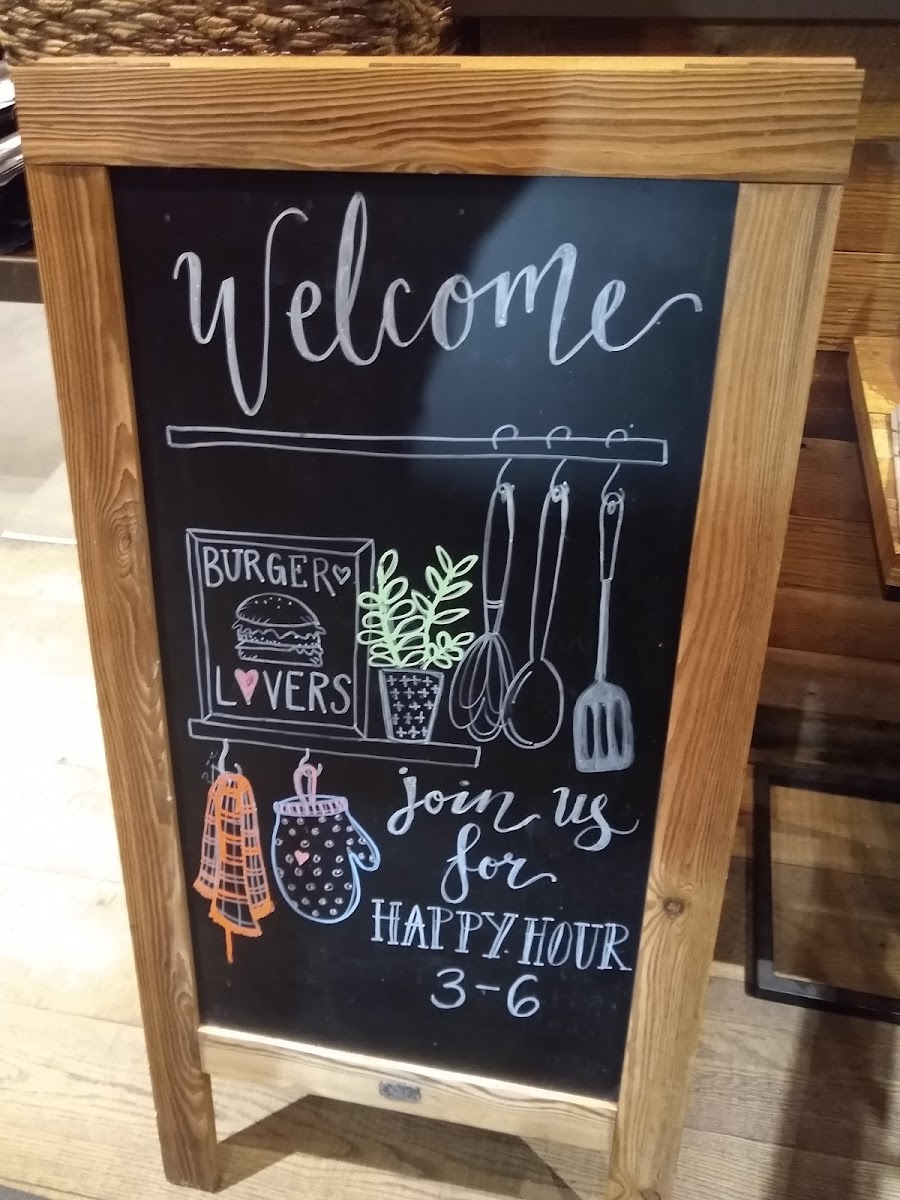 Welcome
BURGER
LOVERS
join us
for
HAPPY HOUR
3-6